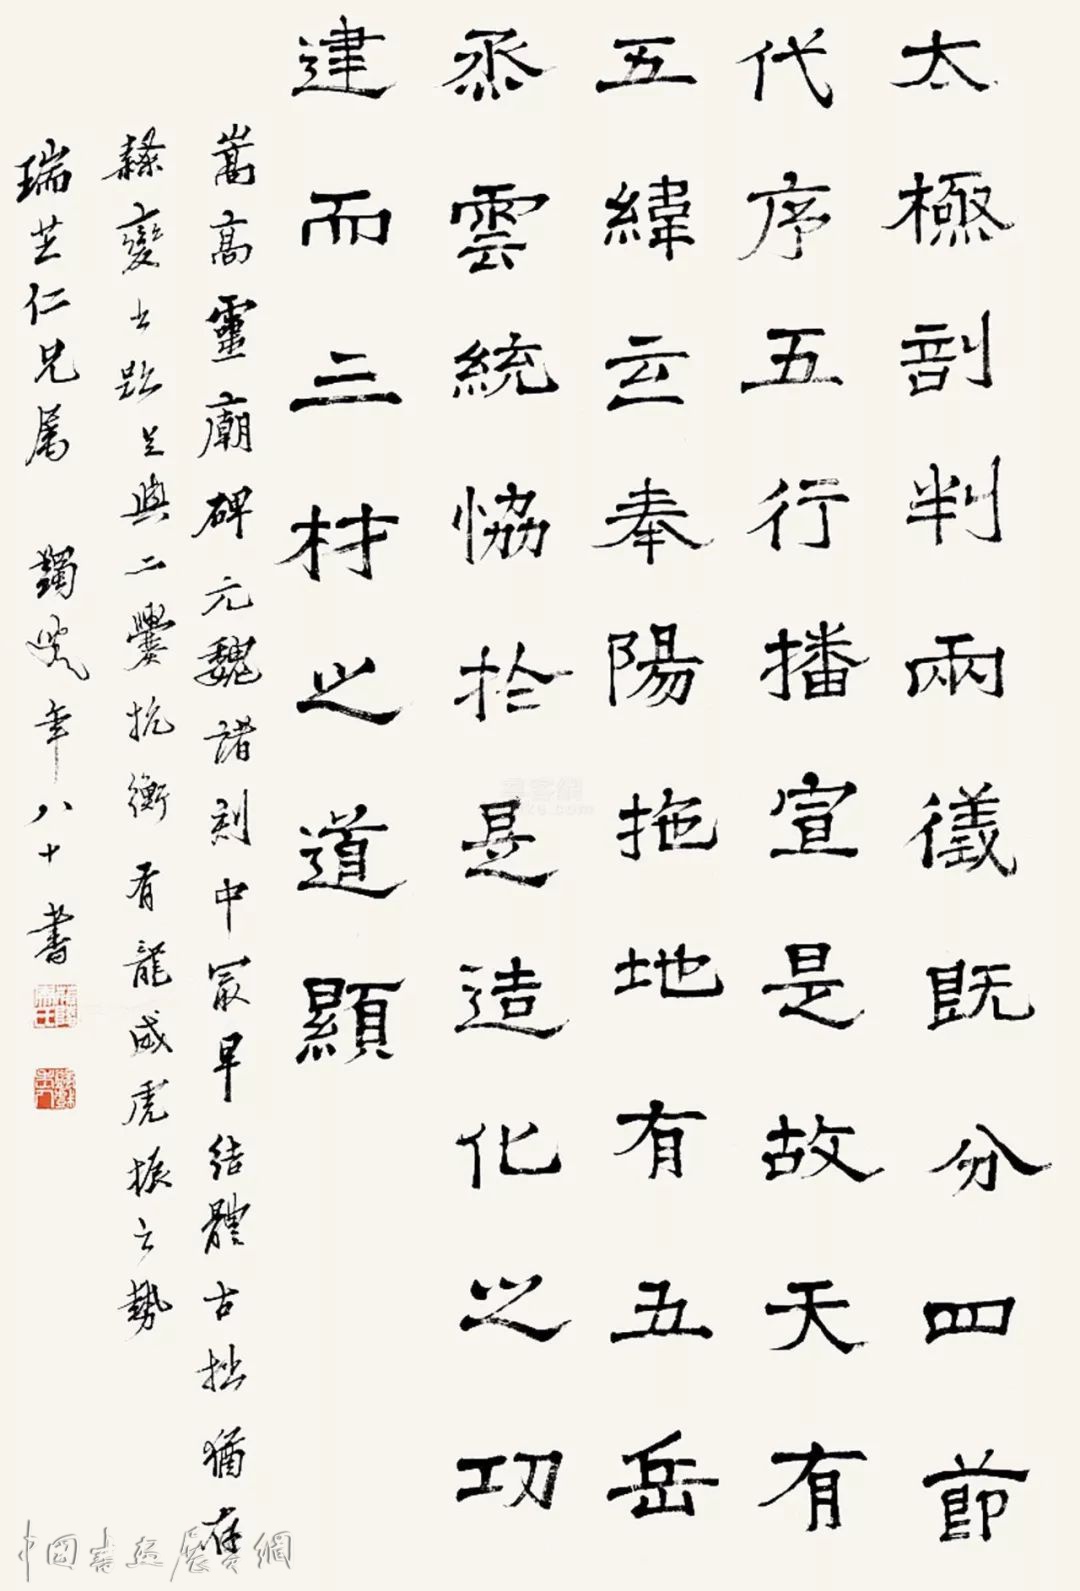 太極剖判兩儀既分四節
代序五行播宣是故天有
五緯奉陽拖地有五岳
烝雲統恊於是造化之功
建而三材之道顯
嵩高靈廟碑元魏諸刻中冣早結體古拙猶在
隸變之際足與二爨抗衡有龍威虎振之勢
瑞芝仁兄属 蠲叟年八十書